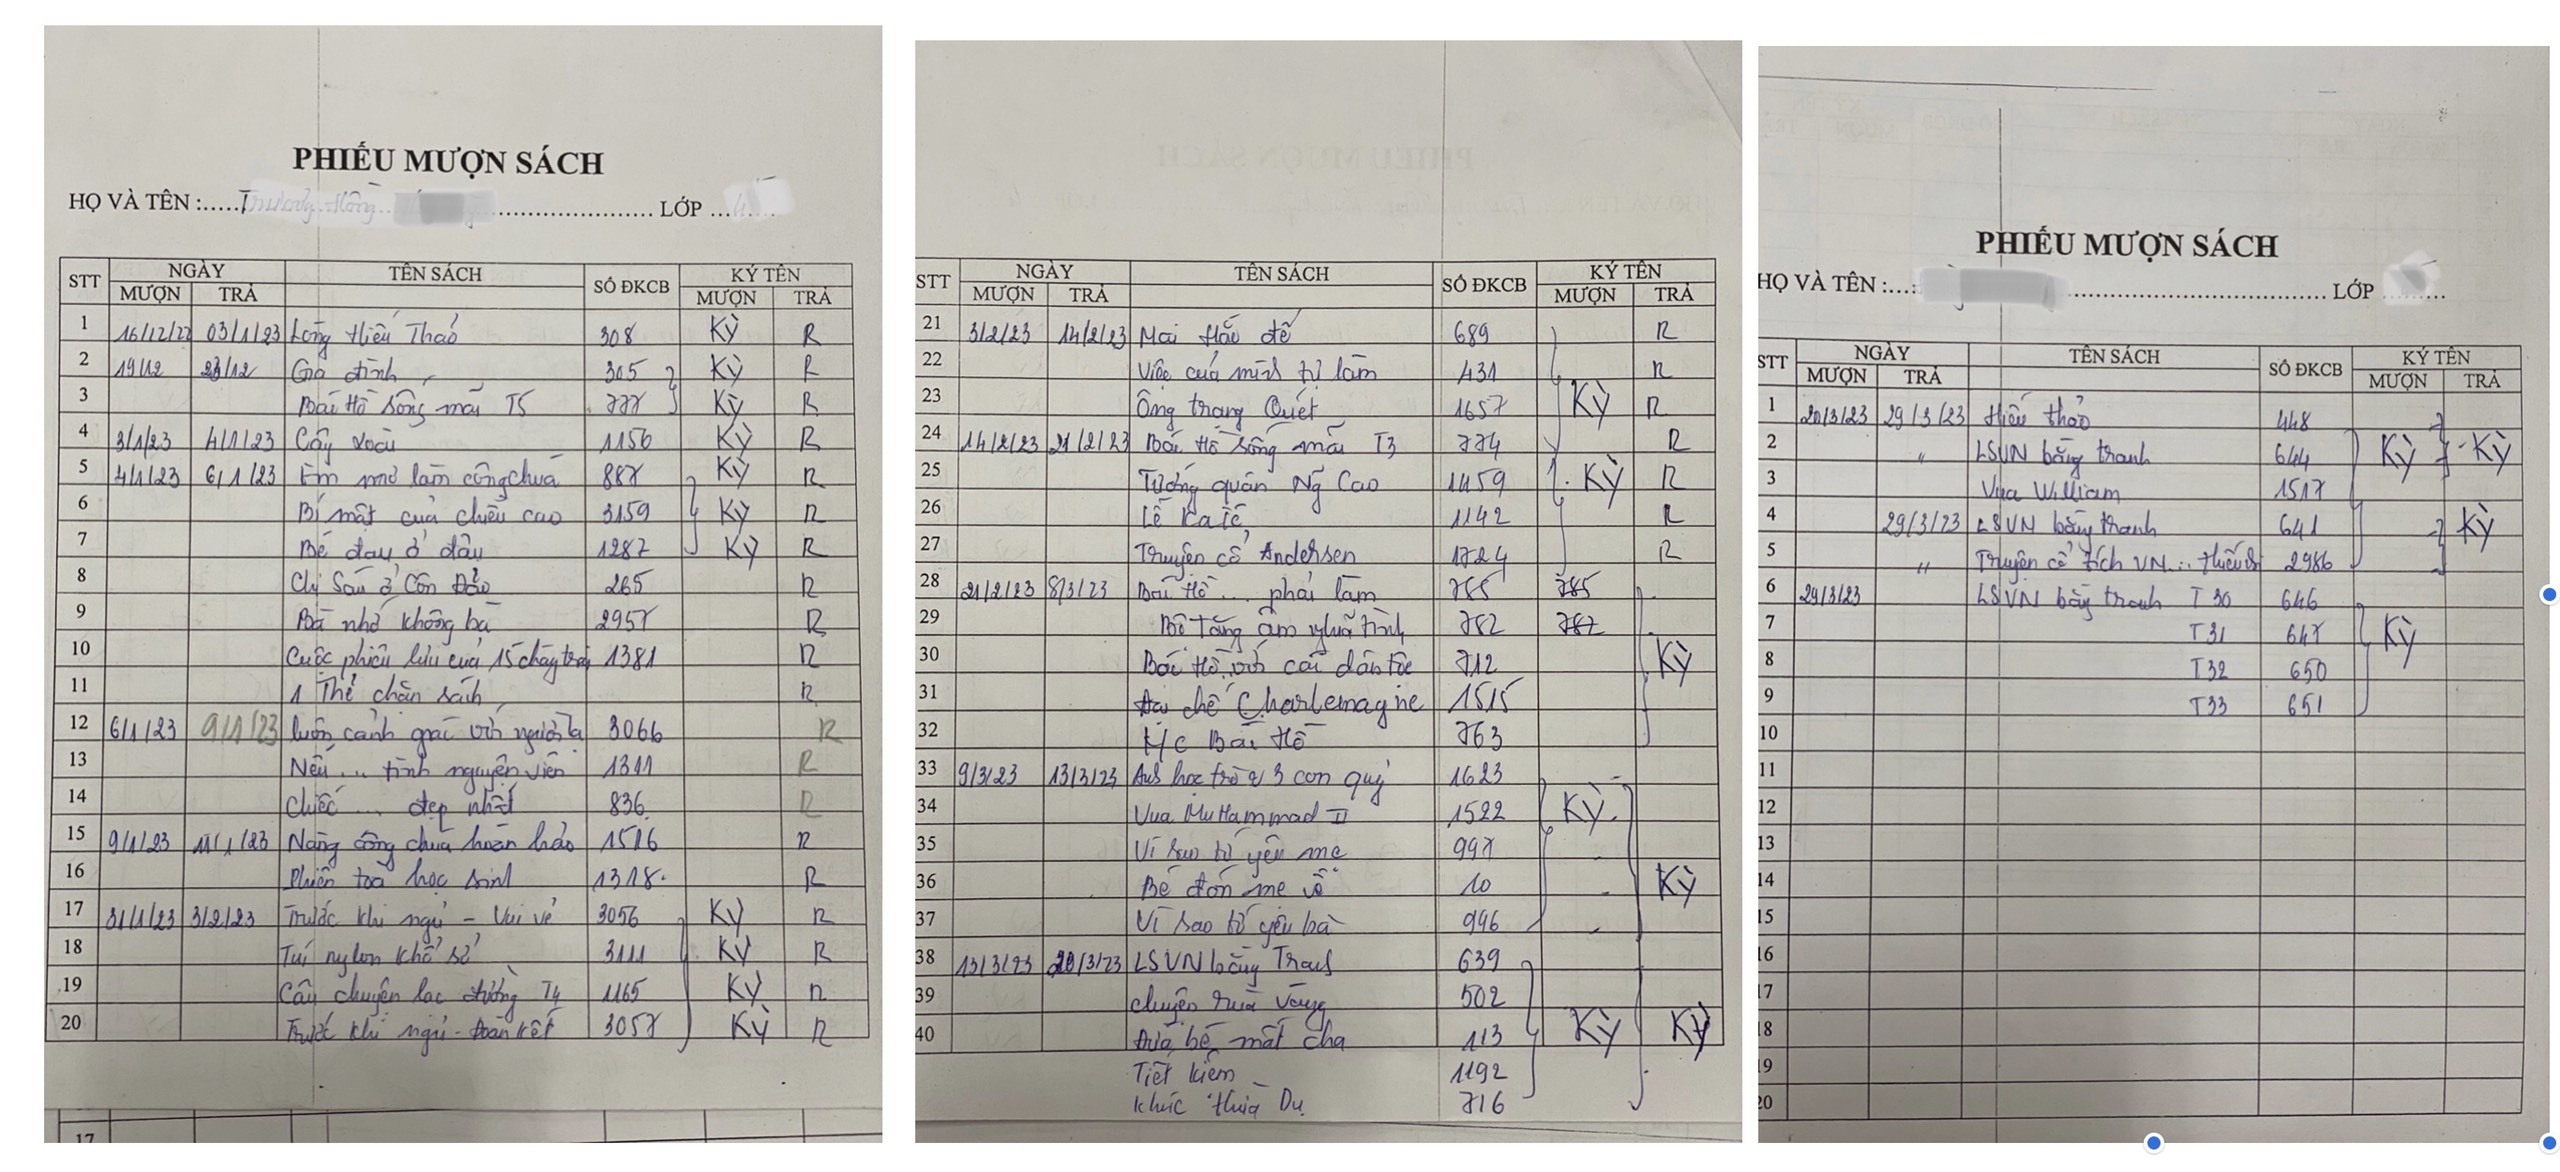 PHIẾU MƯỢN SÁCH
HỌ VÀ TÊN :.....Trương Hồng ........................ LỚP ...4
STT NGÀY TÊN SÁCH SỐ ĐKCB KÝ TÊN
MƯỢN TRẢ MƯỢN TRẢ
1 16/12/22 03/1/23 Lòng Hiếu Thảo 308 Kỳ R
2 19/12 23/12 Gia đình 305 Kỳ R
3 Bác Hồ sống mãi T5 777 Kỳ R
4 3/1/23 4/1/23 Cây xoài 1156 Kỳ R
5 4/1/23 6/1/23 Em mơ làm công chúa 887 Kỳ R
6 Bí mật của chiều cao 3159 Kỳ R
7 Bé đau ở đâu 1287 Kỳ R
8 Chị Sáu ở Côn Đảo 265 R
9 Bà nhớ không bà 2957 R
10 Cuộc phiêu lưu của 15 chàng trai 1381 R
11 1 Thẻ chặn sách R
12 6/1/23 9/1/23 luôn cảnh giác với người lạ 3066 R
13 Nếu ... tình nguyện viên 1311 R
14 Chiếc ... đẹp nhất 836 R
15 9/1/23 11/1/23 Nàng công chúa hoàn hảo 1516 R
16 Phiên toà học sinh 1318 R
17 31/1/23 3/2/23 Trước khi ngủ - Vui vẻ 3056 Kỳ R
18 Túi nylon khổ sở 3111 Kỳ R
19 Câu chuyện lạc đường T4 1165 Kỳ R
20 Trước khi ngủ - Đoàn kết 3057 Kỳ R
17
STT NGÀY TÊN SÁCH SỐ ĐKCB KÝ TÊN
MƯỢN TRẢ MƯỢN TRẢ
21 3/2/23 14/2/23 Mai Hắc đế 689 R
22 Việc của mình tự làm 431 R
23 Ông trạng Quét 1657 Kỳ R
24 14/2/23 21/2/23 Bác Hồ sống mãi T3 774 R
25 Tướng quân Ng Cao 1459 Kỳ R
26 Lễ Ka tê 1142 R
27 Truyện cổ Andersen 1724 R
28 21/2/23 8/3/23 Bác Hồ ... phải làm 785 785
29 782 782
30 Bác Hồ với các dân tộc 712 Kỳ
31 Đại chế Charlemagne 1515
32 K/c Bác Hồ 763
33 9/3/23 13/3/23 Anh học trò & 3 con quỷ 1623
34 Vua Muhammad II 1522 Kỳ
35 Vì sao tớ yêu mẹ 997
36 Bé đón mẹ về 10 Kỳ
37 Vì sao tớ yêu bà 996
38 13/3/23 20/3/23 LSVN bằng Tranh 639
39 chuyện rùa vàng 502
40 Đứa bé mất cha 113 Kỳ Kỳ
Tiết kiệm 1192
Khúc Thừa Dụ 716
PHIẾU MƯỢN SÁCH
HỌ VÀ TÊN :............................................ LỚP ..........
STT NGÀY TÊN SÁCH SỐ ĐKCB KÝ TÊN
MƯỢN TRẢ MƯỢN TRẢ
1 20/3/23 29/3/23 Hiếu thảo 448
2 " LSVN bằng tranh 644 Kỳ Kỳ
3 Vua William 1517
4 29/3/23 LSVN bằng tranh 641 Kỳ
5 " Truyện cổ tích VN ... 2986
6 29/3/23 LSVN bằng tranh T30 646
7 T31 647 Kỳ
8 T32 650
9 T33 651
10
11
12
13
14
15
16
17
18
19
20